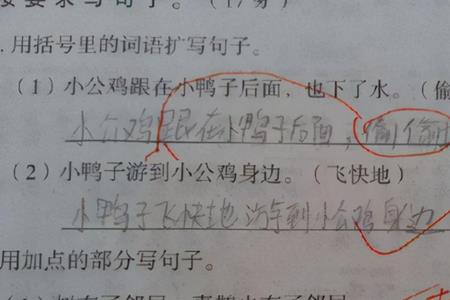 按要求写句子。(17分)
.用括号里的词语扩写句子。
(1)小公鸡跟在小鸭子后面,也下了水。(偷
小公鸡跟在小鸭子后面,偷偷
(2)小鸭子游到小公鸡身边。(飞快地)
小鸭子飞快地游到小公鸡身边
用加点的部分写句子。